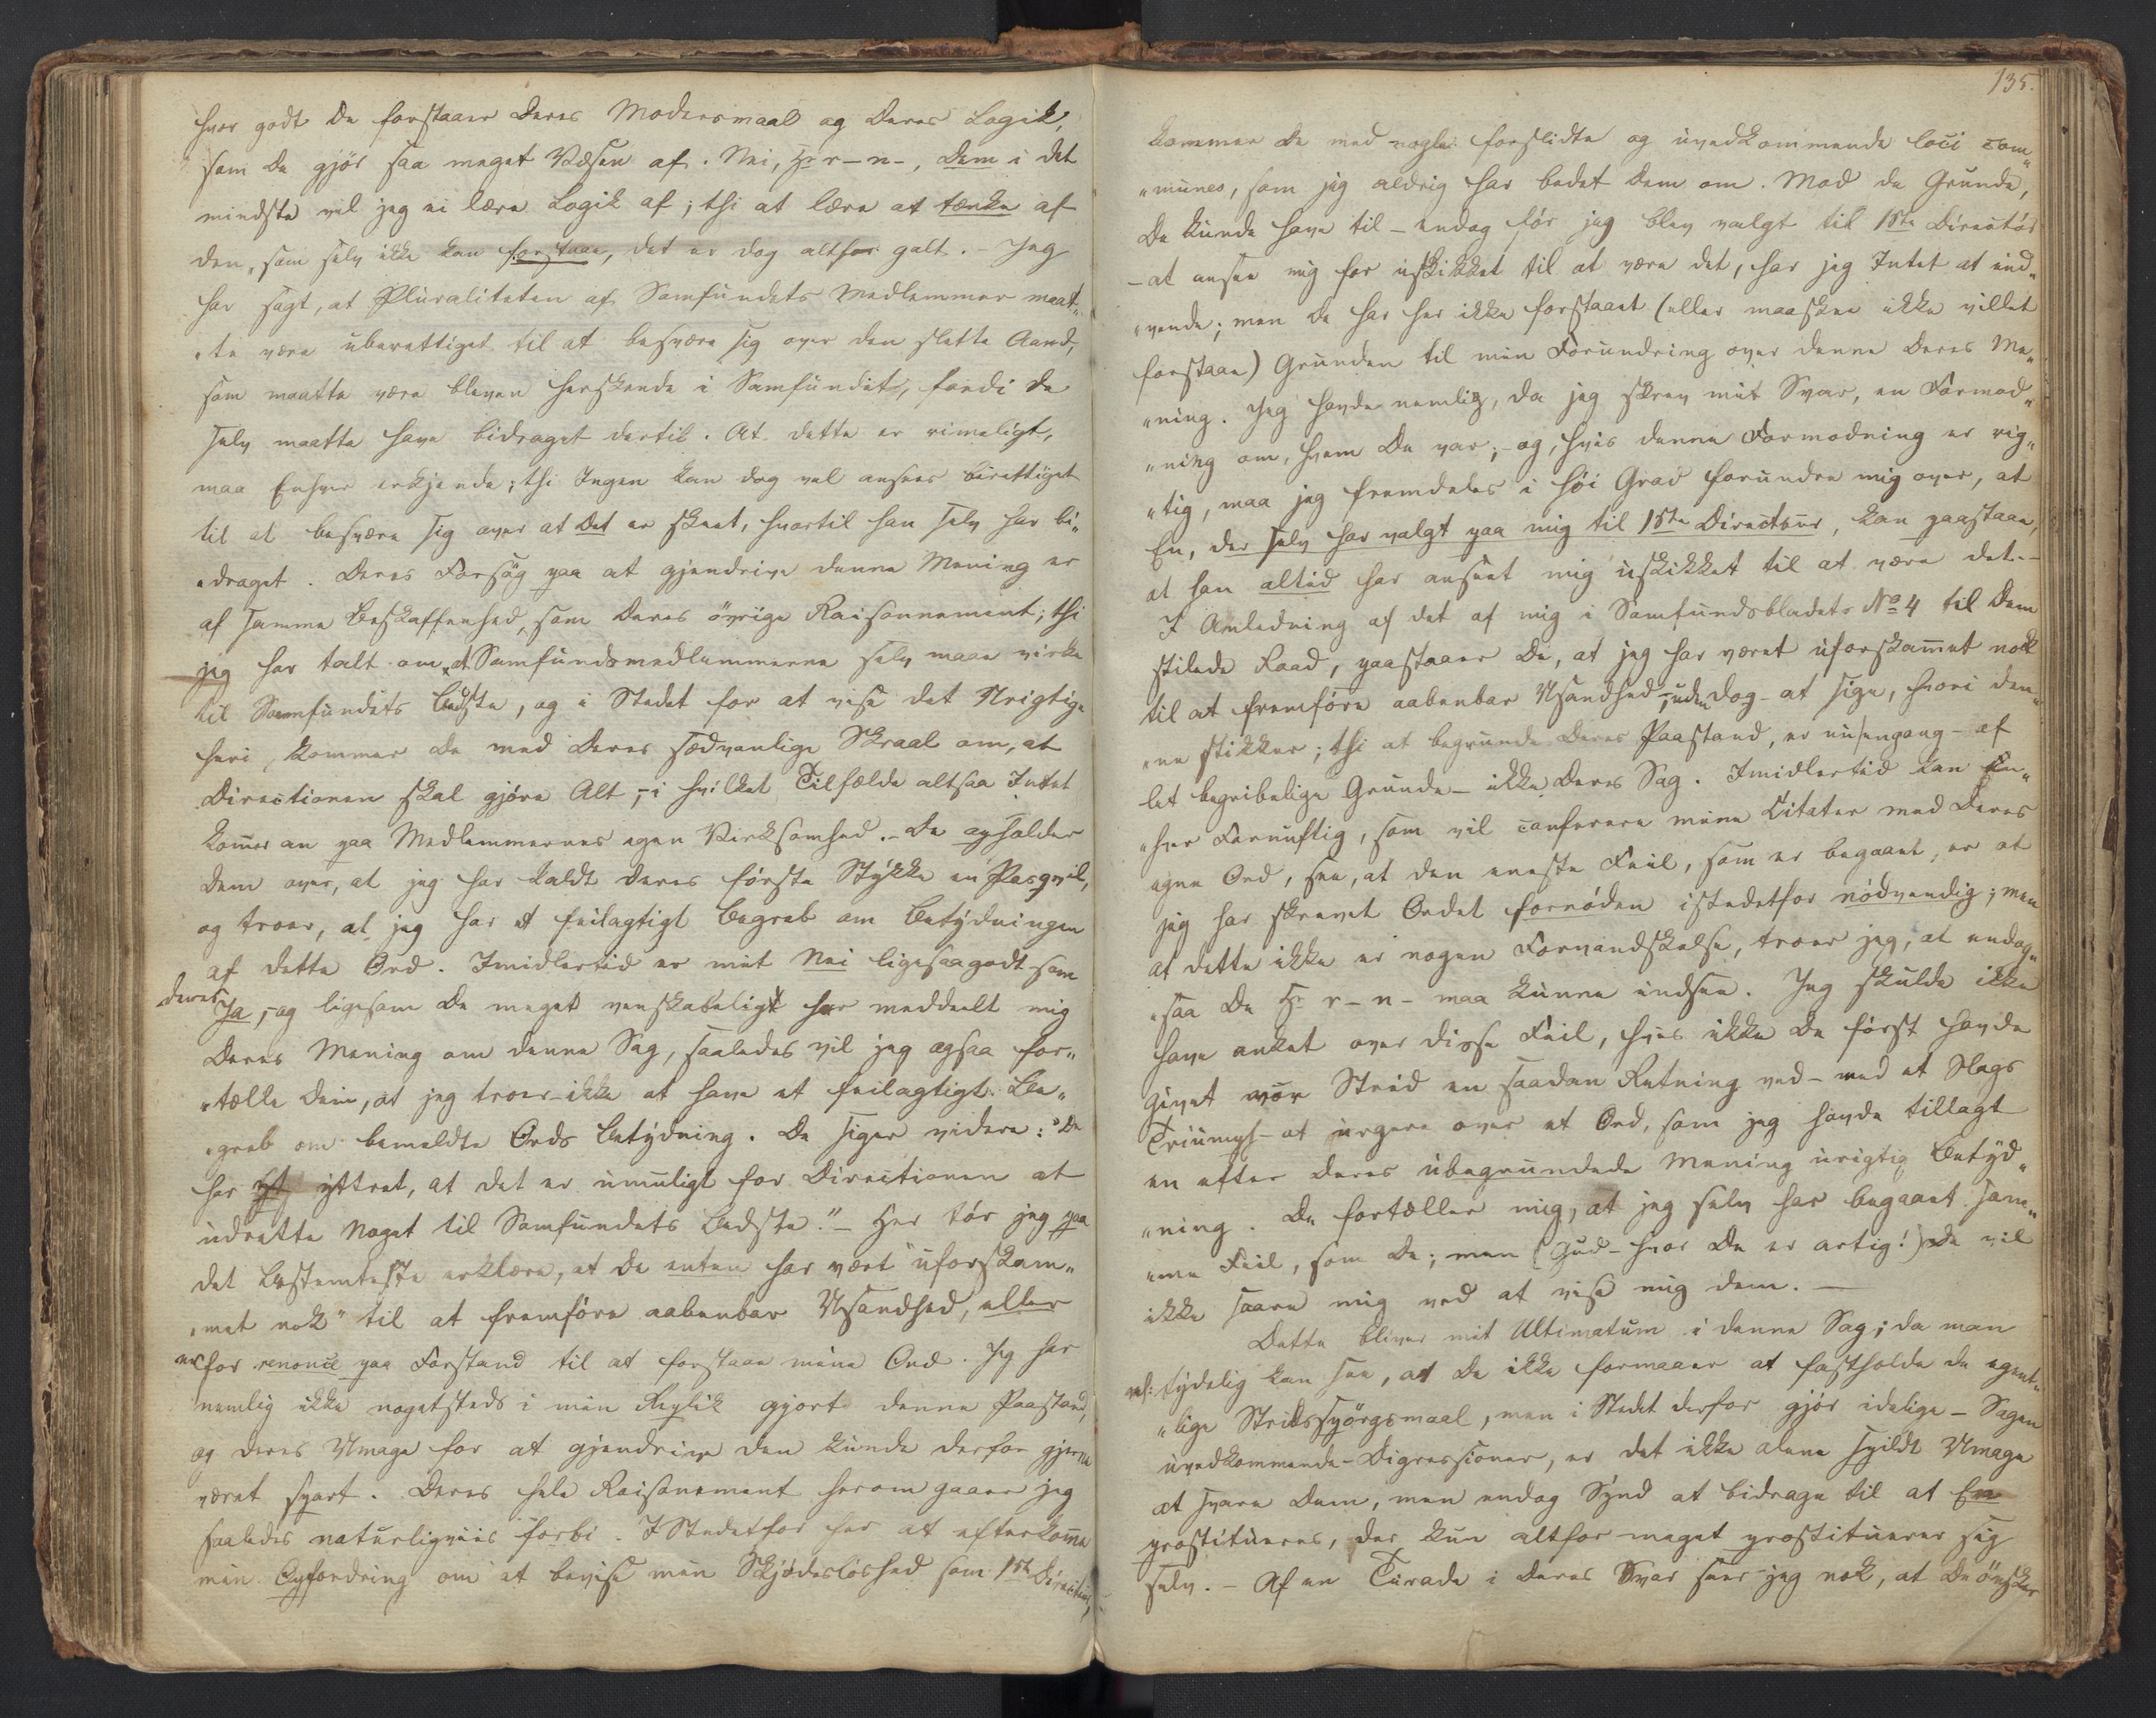 hvor godt De forstaaer Deres Modersmaal og Deres Logik,
som De gjör saa meget Væsen af. Nei, Hr r-n-, Dem i det
mindste vil jeg ei lære Logik af; thi at lære at tænke af
den, som selv ikke kan forstaae, det er dog altfor galt. - Jeg
har sagt, at Pluraliteten af Samfundets Medlemmer maat„
„te være uberettiget til at besvære sig over den slette Aand,
som maatte være bleven herskende i Samfundet, fordi de
selv maatte have bidraget dertil. At dette er rimeligt,
maa Enhver erkjende; thi Ingen kan dog vel ansees berettiget
til at besvære sig over at Det er skeet, hvortil han selv har bi„
„draget. Deres Forsög paa at gjendrive denne Mening er
af samme Beskaffenhed, som Deres övrige Raisonnement; thi
jeg har talt om, at Samfundsmedlemmerne selv maae virke
til Samfundets Bedste, og i Stedet for at vise det Urigtige
heri, kommer De med Deres sædvanlige Skraal om, at
Directionen skal gjöre Alt, - i hvilket Tilfælde altsaa Intet
kom̄er an paa Medlemmernes egen Virksomhed. - De opholder
Dem over, at jeg har kaldt Deres förste Stykke en Pasqvil,
og troer, at jeg har et feilagtigt Begreb om Betydningen
af dette Ord. Imidlertid er mit Nei ligesaagodt som
Deres Ja, - og ligesom De meget venskabeligt har meddeelt mig
Deres Mening om denne Sag, saaledes vil jeg ogsaa for„
„tælle Dem, at jeg troer ikke at have et feilagtigt Be„
„greb om bemeldte Ords Betydning. De siger videre: "De
har yt yttret, at det er umuligt for Directionen at
udrette Noget til Samfundets Bedste." - Her tör jeg paa
det Bestemteste erklære, at De enten har vært "uforskam„
„met nok" til at fremföre aabenbar Usandhed, eller
er for renonce paa Forstand til at forstaae mine Ord. Jeg har
nemlig ikke nogetsteds i min Replik gjort denne Paastand,
og Deres Umage for at gjendrive den kunde derfor gjerne
været spart. Deres hele Raisonnement herom gaaer jeg
saaledes naturligviis forbi. I Stedetfor her at efterkom̄e
min Opfordring om at bevise min Skjödeslöshed som 1ste Directeur,
135.
kommer De med nogle forslidte og uvedkommende loci com„
„munes, som jeg aldrig har bedet Dem om. Mod de Grunde,
De kunde have til - endog för jeg blev valgt til 1ste Directör
- at ansee mig for uskikket til at være det, har jeg Intet at ind„
„vende; men De har her ikke forstaaet (eller maaskee ikke villet
forstaae) Grunden til min Forundring over denne Deres Me„
„ning. Jeg havde nemlig, da jeg skrev mit Svar, en Formod„
„ning om, hvem De var; - og, hvis denne Formodning er rig„
„tig, maa jeg fremdeles i höi Grad forundre mig over, at
En, der selv har valgt paa mig til 1ste Directeur, kan paastaae,
at han altid har anseet mig uskikket til at være det. -
I Anledning af det af mig i Samfundsbladets No 4 til Dem
stilede Raad, paastaaer De, at jeg har været uforskam̄et nok
til at fremföre aabenbar Usandhed, - uden dog at sige, hvori den„
„ne stikker; thi at begrunde Deres Paastand, er nu engang - af
let begribelige Grunde - ikke Deres Sag. Imidlertid kan En„
„hver Fornuftig, som vil conferere mine Citater med Deres
egne Ord, see, at den eneste Feil, som er begaaet, er at
jeg har skrevet Ordet fornöden istedetfor nödvendig; men
at dette ikke er nogen Forvandskelse, troer jeg, at endog„
„saa De Hr r-n- maa kunne indsee. Jeg skulde ikke
have anket over disse Feil, hvis ikke De först havde
givet vor Strid en saadan Retning ved - med et Slags
Triumph - at urgere over et Ord, som jeg havde tillagt
en efter Deres ubegrundede Mening urigtig Betyd„
„ning. De fortæller mig, at jeg selv har begaaet sam„
„me Feil, som De; men (Gud - hvor De er artig!) De vil
ikke saare mig ved at vise mig dem. -
Dette bliver mit Ultimatum i denne Sag; da man
vel: tydelig kan see, at De ikke formaaer at fastholde de egent„
„lige Stridsspörgsmaal, men i Stedet derfor gjör idelige - Sagen
uvedkommende - Digressioner, er det ikke alene spildt Umage
at svare Dem, men endog Synd at bidrage til at En
prostitueres, der kun altfor meget prostituerer sig
selv. - Af en Tirade i Deres Svar seer jeg nok, at De önsker